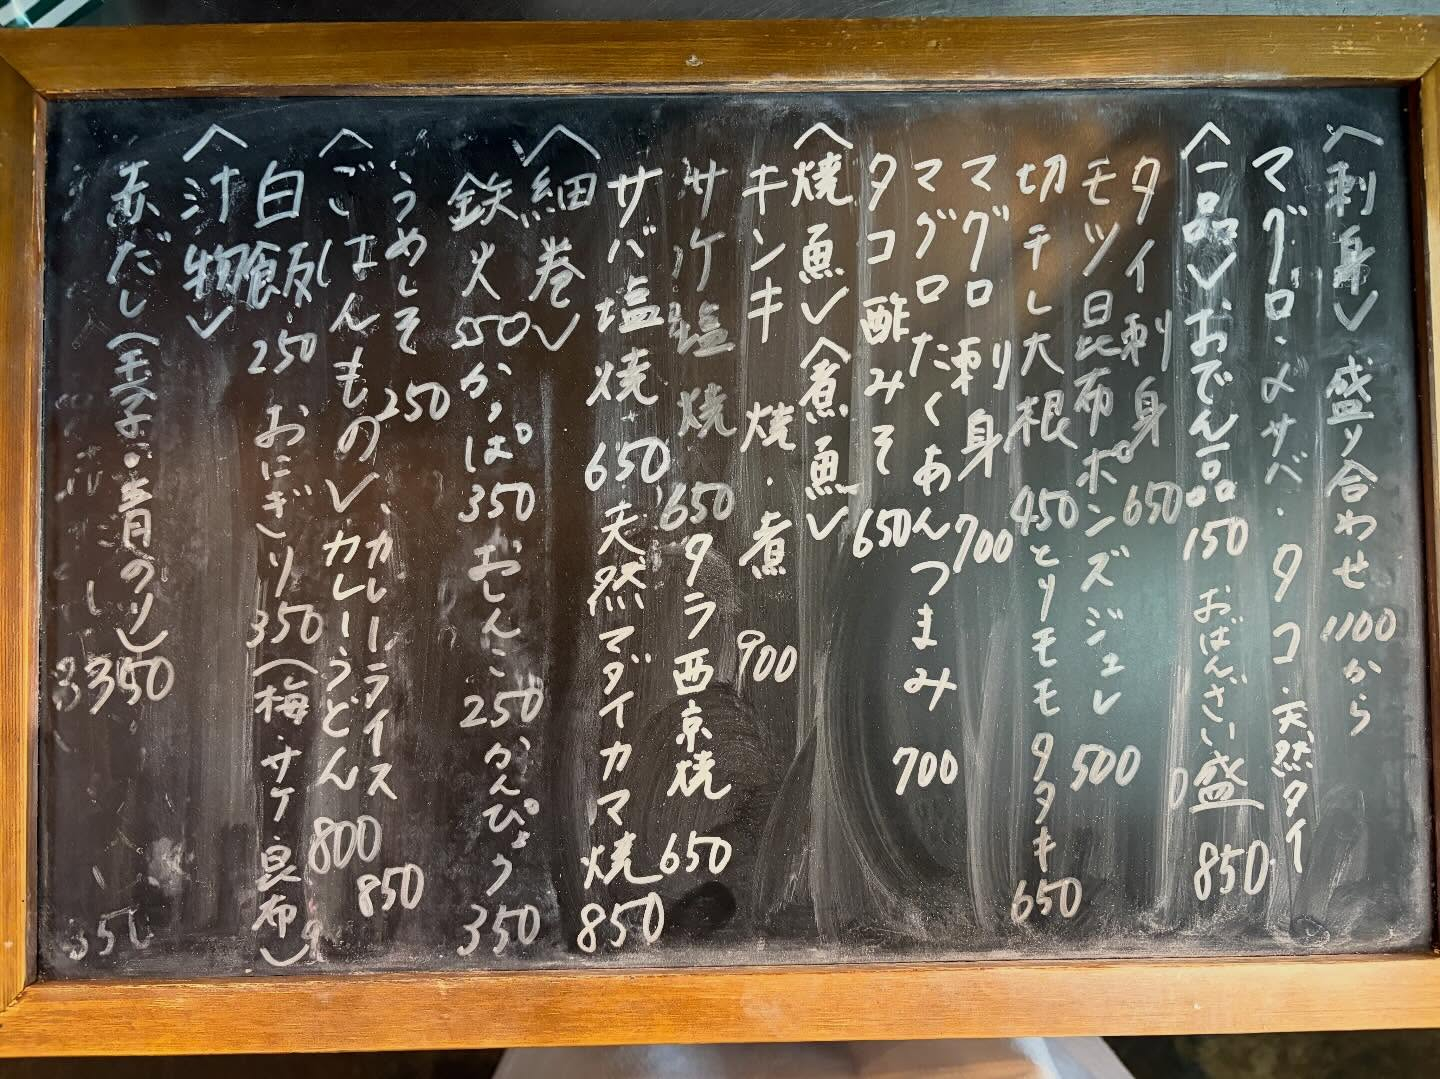 〈刺身〉盛り合わせ1100から
マグロ・〆サバ・タコ・天然タイ
〈一品〉おでん一品150 おばんざい盛850
タイ刺身650
モツ昆布ポンズジュレ500
切干し大根450とりモモタタキ650
マグロ刺身700
マグロたくあんつまみ700
タコ酢みそ650
〈焼魚〉〈煮魚〉
キンキ 焼・煮 900
サケ塩焼650タラ西京焼650
サバ塩焼650天然マダイカマ焼850
〈細巻〉
鉄火550かっぱ350おしんこ250かんぴょう350
うめしそ250
〈ごはんもの〉カレーライス850
カレーうどん800
白飯250 おにぎり350(梅・サケ・昆布)
〈汁物〉
赤だし(玉子・青のり)350